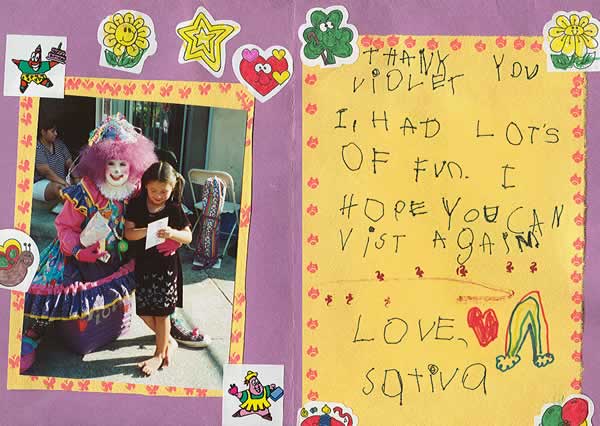 THANK YOU
VIOLET
I, HAD LOT'S
OF FUN. I
HOPE YOU CAN
VIST AGAIN
LOVE,
Sativa